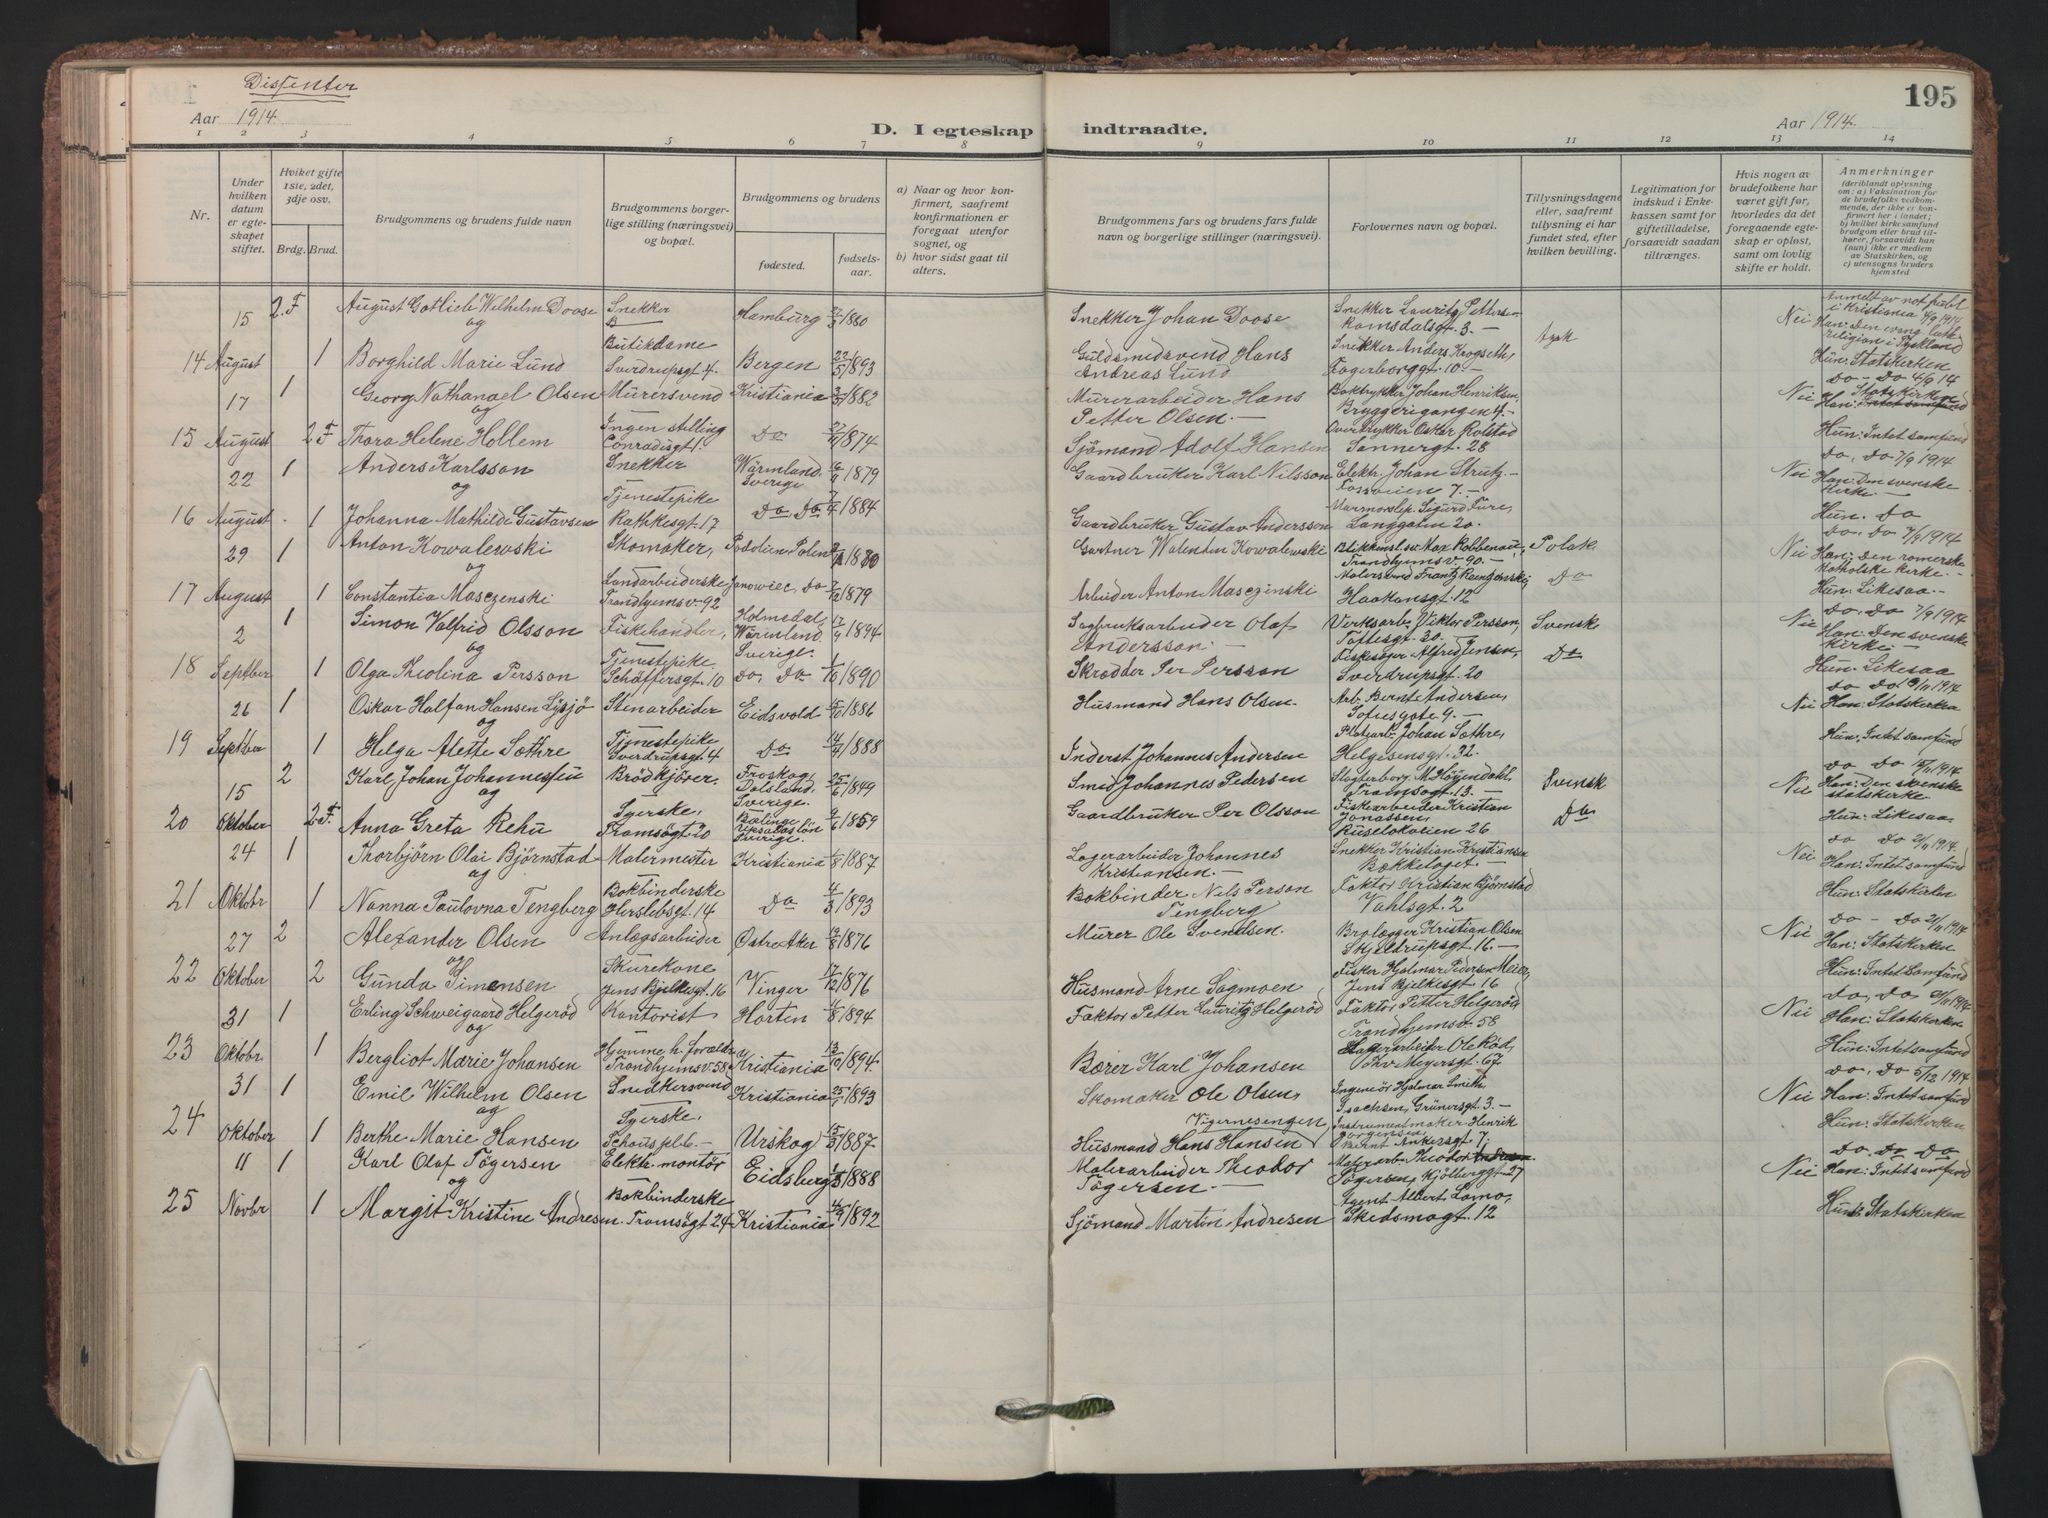 Dissenter
Aar 1914.
D. I egteskap indtraadte.
Aar 1914.
195
1 2 3 4 5 6 7 8 9 10 11 12 13 14
Nr.
Under hvilken datum er egteskapet stiftet.
Hviket gifte 1ste, 2det, 3dje osv.
Brdg. Brud.
Brudgommens og brudens fulde navn
Brudgommens borgerlige stilling (næringsvei) og bopæl.
Brudgommens og brudens
fødested.
fødselsaar.
a) Naar og hvor konfirmert, saafremt konfirmationen er foregaat utenfor sognet, og
b) hvor sidst gaat til alters.
Brudgommens fars og brudens fars fulde navn og borgerlige stillinger (næringsvei).
Forlovernes navn og bopæl.
Tillysningsdagene eller, saafremt tillysning ei har fundet sted, efter hvilken bevilling.
Legitimation for indskud i Enkekassen samt for giftetilladelse, forsaavidt saadan tiltrænges.
Hvis nogen av brudefolkene har været gift før, hvorledes da det foregaaende egteskap er opløst, samt om lovlig skifte er holdt.
Anmerkninger
(deriblandt oplysning om: a) Vaksination for de brudefolks vedkommende, der ikke er konfirmert her i landet; b) hvilket kirkesamfund brudgom eller brud tilhører, forsaavidt han (hun) ikke er medlem av Statskirken, og c) utensogns bruders hjemsted
15 2.F August Gotlieb Wilhelm Doose Snekker Hamburg 1880 Snekker Johan Doose Snekker Lauritz Pettersen Romsdalsgt. 3. Tysk Nei Anmelt av not. publ. i Kristiania 4/9 1914 Han: Den evang. luth. religion i Tyskland
og
14 August 1 Borghild Marie Lund Butikdame Sverdrupsgt 4. Bergen 22/5 1893 Guldsmedsvend Hans Andreas Lund Snekker Anders Krogseth, Fagerborggt. 10. Hun: Statskirken
17 1 Georg Nathanael Olsen Murersvend Kristiania 1882 Murerarbeider Hans Petter Olsen. Boktrykker Johan Henriksen, Bryggerigangen 4. Nei Do - Do 4/9 14 Han: Statskirken
og
15 August 2 F Thora Helene Hollem Ingen stilling Conradisgt 1. Do 1874 Sjömand Adolf Hansen Overtrykker Oskar Rolstad Sannergt. 28 Hun: Intet samfund
22 1 Anders Karlsson Snekker Wärmland, Sverige 1879 Gaardbruker Karl Nilsson Elektr. Johan Strutz. Fossveien 7. Nei Do, Do 7/9 1914 Han: Den svenske kirke
og
16 August 1 Johanna Mathilde Gustavsen Tjenestepike Rathkesgt. 17 Do Do 7/4 1884 Gaardbruker Gustav Andersson Marmorslip. Sigurd Fure, Langgaten 20. Hun: Do
29 1 Anton Kowalewski Skomaker, Podolien, Polen 1880 Gartner Walentin Kowalewski Blikkensl. sv. Max Robbenau, Trondhjemsv. 90. Polak Nei Do, Do 7/9 1914 Han: Den romerske katholske kirke.
og
17 August 1 Constantia Masczenski Landarbeiderske Trondhjemsv. 92 Janowiec, Do 7/12 1879 Arbeider Anton Masczinski Malersvend Haakonsgt. 12 Do Hun: Likesaa.
2 1 Simon Valfrid Olsson Fiskehandler, Holmedal, Wärmland, Sverige. 17/4 1894 Sagbruksarbeider Olaf Andersson Verksarb. Viktor Persson, Toftesgt. 20. Svensk Nei Do, Do 7/9 1914 Han: Den svenske kirke
og
18 Septber 1 Olga Theolina Persson Tjenestepike, Schäffersgt. 10 Do, Do 1/10 1890 Skrædder Per Persson Fiskesöger Alfred Jensen, Sverdrupsgt. 20 Do Hun: Likesaa
26 1 Oskar Halfan Hansen Lysjö Stenarbeider Eidsvold 1886 Husmand Hans Olsen. Arb. Bernt Andersen, Sofiesgate 9. Nei Do Do 9/11 1914 Han: Statskirken
og
19 Septber 1 Helga Alette Sæthre Tjenestepike Sverdrupsgt. 4 Do 1888 Inderst Johannes Andersen Platearb. Johan Sæthre, Helgesensgt. 32. Hun: Intet samfund
15 2 Karl Johan Johannessen Brödkjörer. Froskog, Dalsland, Sverige. 25/6 1849 Smed Johannes Pedersen Slagterborg. M. Höyendahl, Tromsögt. 13. Svensk Nei Do Do 1914 Han: Den svenske statskirke.
og
20 Oktober 2 F. Anna Greta Rehn Syerske, Tromsögt 20 Bælinge Upsalaslän Sverige. 9/6 1859 Gaardbruker Per Olsson Fiskearbeider Kristian Jonassen, Ruselokveien 26 Do Hun: Likesaa.
24 1 Thorbjörn Olai Björnstad Malermester Kristiania 1887 Lagerarbeider Johannes Kristiansen. Snekker Kristian Kristiansen Bækkelaget. Nei Do Do 2/11 1914. Han: Intet samfund
og
21 Oktobr 1 Nanna Paulovna Tengberg Bokbinderske Herslebsgt. 14 Do 4/3 1893 Bokbinder Nils Person Tengberg Faktor Kristian Björnstad Vahlsgt. 2 Hun: Statskirken
27 2 Alexander Olsen Anlægsarbeider Östre Aker 19/8 1876 Murer Ole Svendsen. Brolægger Kristian Olsen Skjeldrupsgt. 16. Nei Do - Do 21/11 1914 Han: Statskirken
og
22 Oktober 2 Gunda Simensen Skurekone Jens Bjelkesgt. 16 Vinger 17/12 1876 Husmand Arne Sagmoen Fisker Hjalmar Pedersen Meier, Jens Bjelkesgt 16 Hun: Intet Samfund
31 Erling Schweigaard Helgeröd Kontorist Horten 1894 Faktor Petter Lauritz Helgeröd Faktor Petter Helgeröd, Trondhjemsv. 58 Nei Do, Do 1914 Han: Statskirken
og
23 Oktobr. 1 Bergliot Marie Johansen Hjemme h. forældre Trondhjemsv. 58 Kristiania 13/10 1894. Bærer Karl Johansen Lagerarbeider Ole Röd, Thv. Meyersgt. 67. Hun: Intet samfund
31 1 Emil Wilhelm Olsen Snedkersvend Kristiania 1893 Skomaker Ole Olsen, Ingeniör Hjalmar Smith Isachsen, Grünersgt. 3. Nei Do, Do 5/12 1914 Han: Intet samfund
og
24 Oktober 1 Berthe Marie Hansen Syerske, Schouspl. 6. Urskog 15/3 1887. Vigernesengen Husmand Hans Hansen Instrumentmaker Henrik Jörgensen Bernt Ankersgt 7. Hun: Statskirken
11 1 Karl Olaf Tögersen Elektr. montör Eidsberg 1888 Malerarbeider Theodor Tögersen. Malerarb. Theodor Tögersen, Kjölberggt. 27 Nei Do. Do Do Han: Intet samfund
og
25 Novbr 1 Margit Kristine Andresen. Bokbinderske Tromsögt 24 Kristiania 1892 Sjömand Martin Andresen Agent Albert Lomo, Skedsmogt. 12 Hun: Statskirken